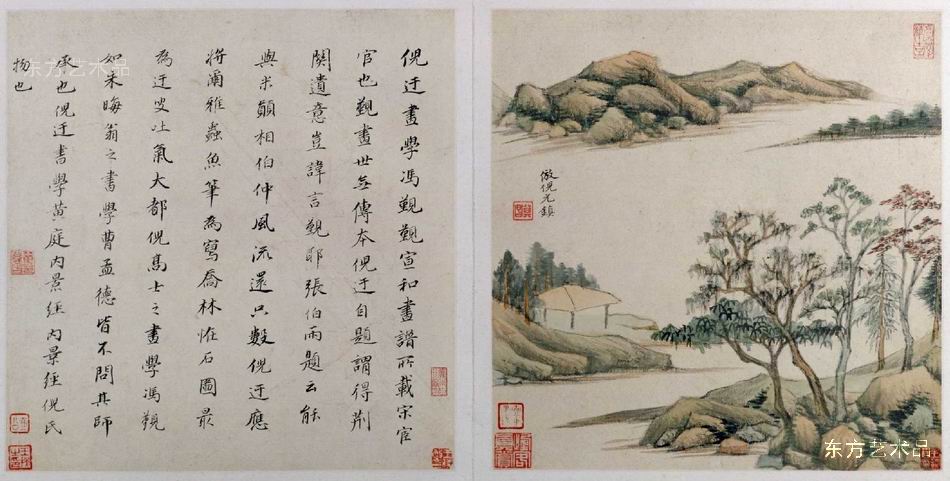 倪迂畫學馮覲覲宣和畫譜所載宋宦
官也覲畫世無傳本倪迂自題謂得荊
關遺意豈諱言覲耶張伯雨題云能
與米顛相伯仲風流還只數倪迂應
將蘭雅蟲魚筆為寫喬林恠石圖最
為迂叟吐氣大都倪高士之畫學馮覲
如朱晦翁之書學曹孟德皆不問其師
承也倪迂書學黄庭内景經内景經倪氏
物也
倣倪元鎮
东方艺术品
东方艺术品